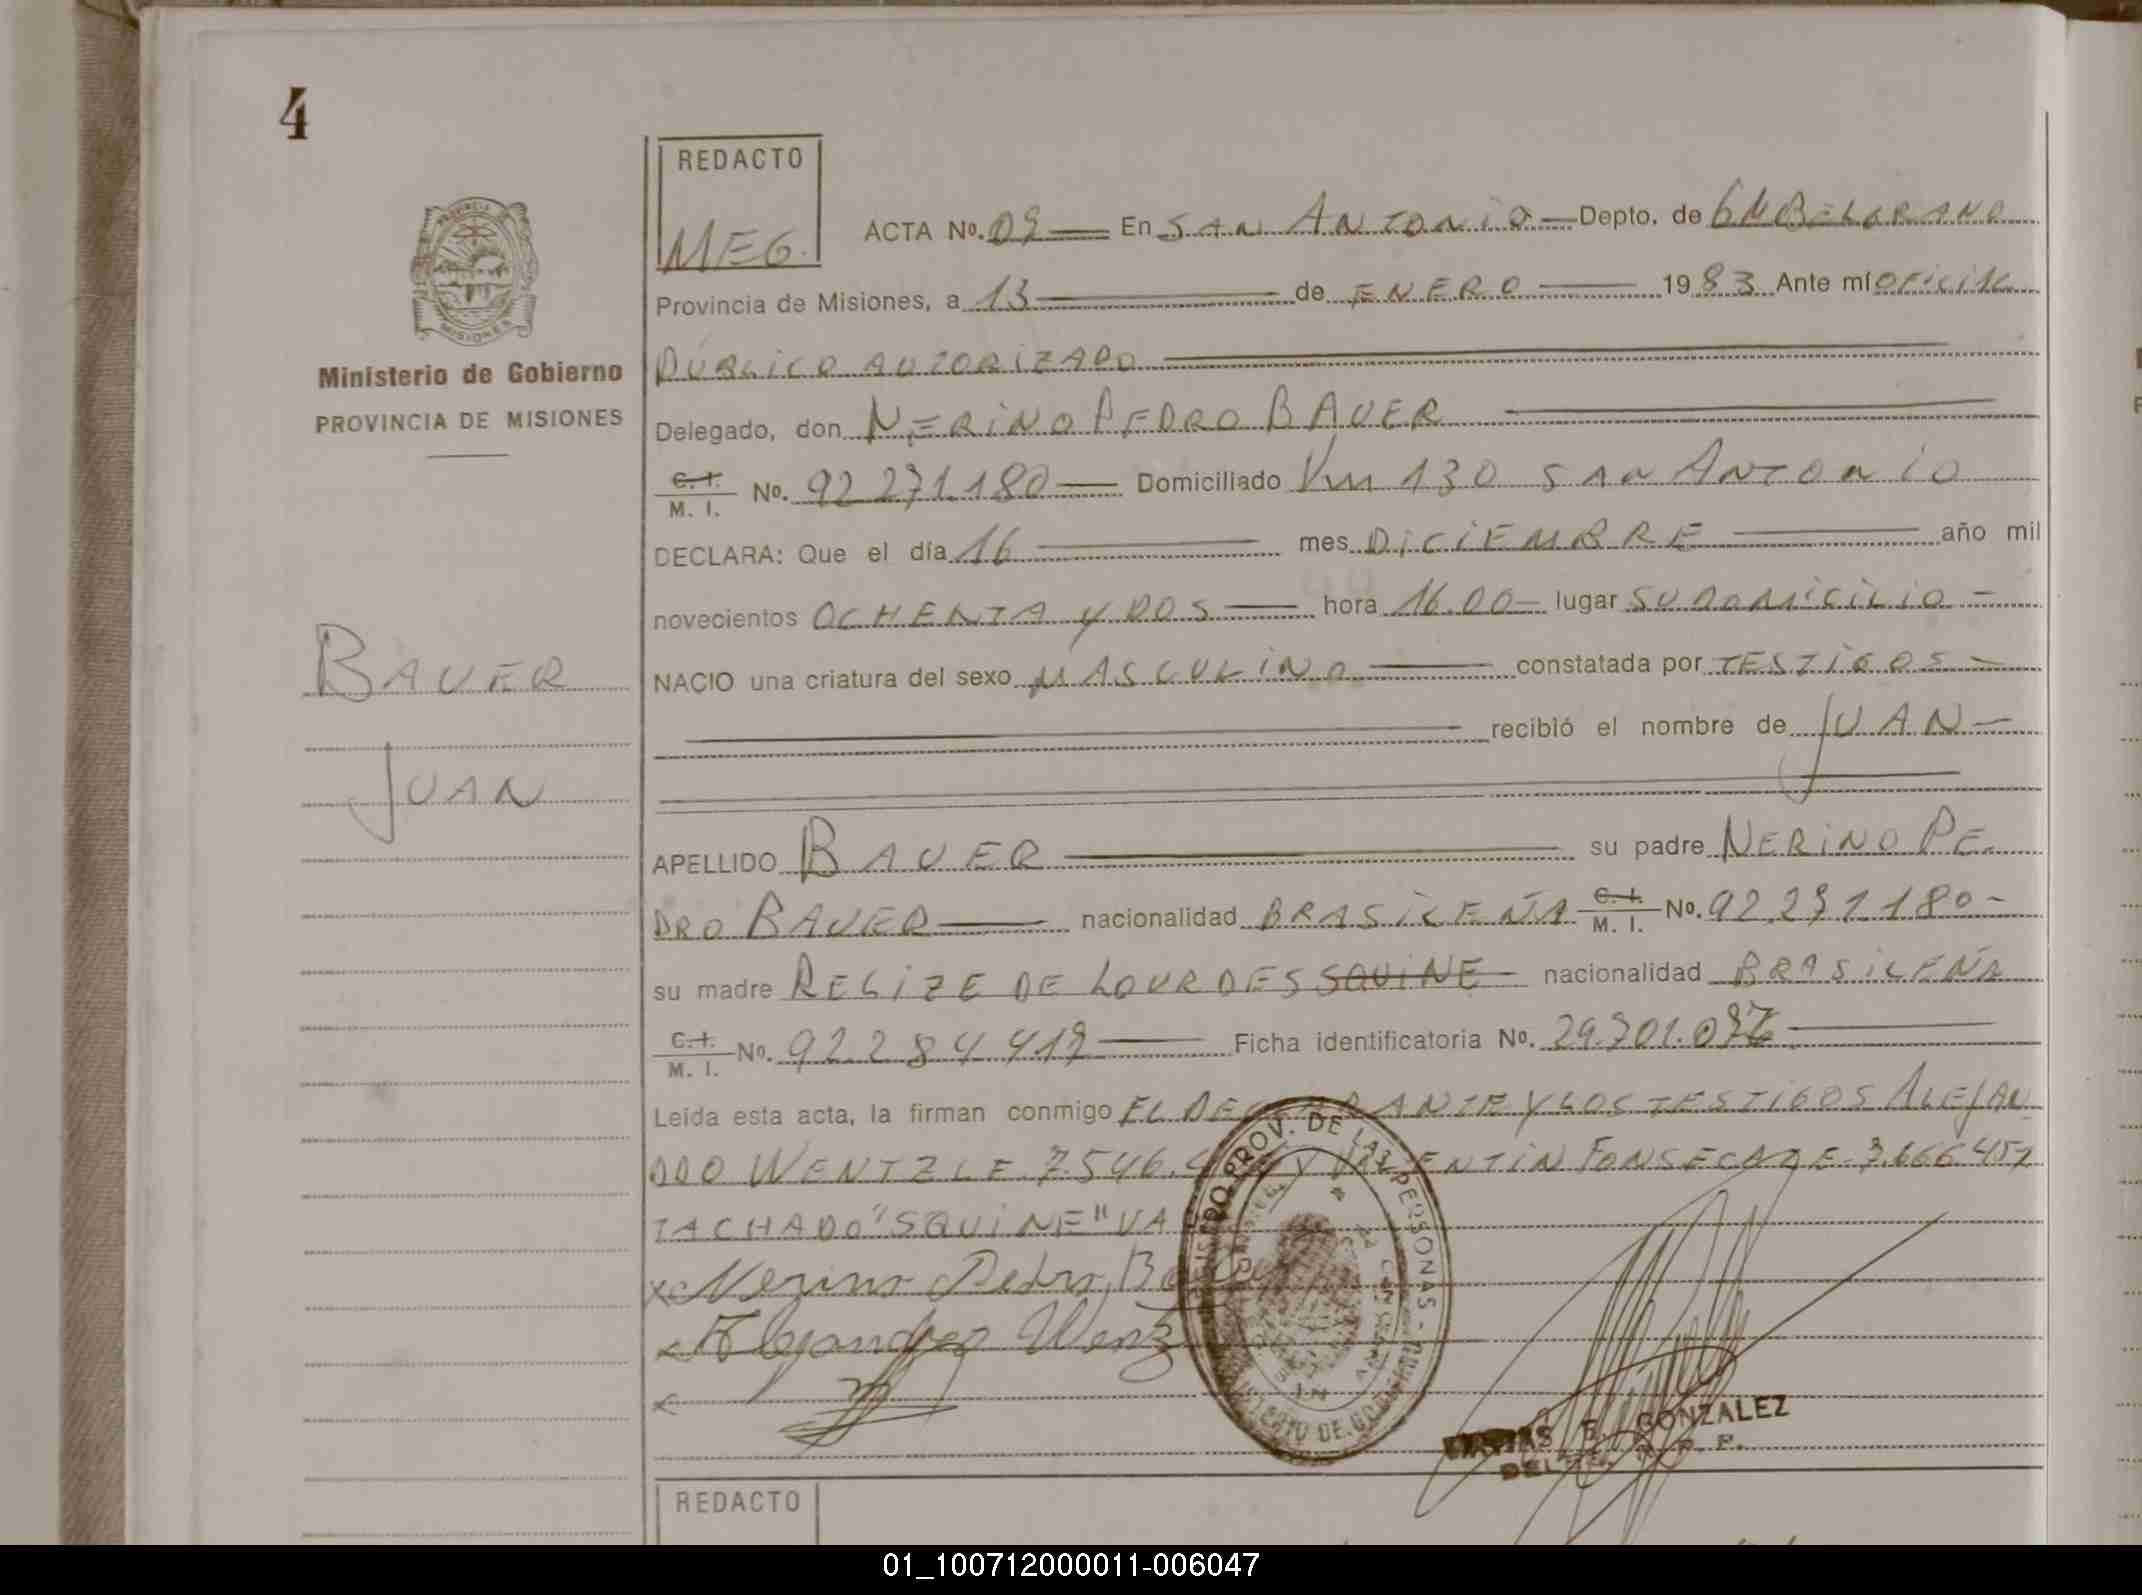 4
REDACTO
MEG.
ACTA Nº. 09 En SAN ANTONIO Depto. de GM BELGRANO
Provincia de Misiones, a 13 de ENERO 1983 Ante mí OFICIAL
PUBLICO AUTORIZADO
PROVINCIA DE
MISIONES
Ministerio de Gobierno
PROVINCIA DE MISIONES
Delegado, don NERINO PEDRO BAUER
C. I. / M. I. Nº. 92 271.180 Domiciliado Km 130 SAN ANTONIO
DECLARA: Que el día 16 mes DICIEMBRE año mil
novecientos OCHENTA Y DOS hora 16.00 lugar SU DOMICILIO
BAUER
NACIO una criatura del sexo MASCULINO constatada por TESTIGOS
recibió el nombre de JUAN
JUAN
APELLIDO BAUER su padre NERINO PE-
DRO BAUER nacionalidad BRASILEÑA C. I. / M. I. Nº. 92.271180
su madre RELIZE DE LOURDES SQUINE nacionalidad BRASILEÑA
C. I. / M. I. Nº. 92284419 Ficha identificatoria Nº. 29.701.0
Leída esta acta, la firman conmigo EL DECLARANTE Y LOS TESTIGOS ALEJAN
DRO WENTZLE 7.546. Y VALENTIN FONSECA DE 7.666.457
TACHADO "SQUINE" VA
x Nerino Pedro Bauer
x Alejandro Wenz
x
REGISTRO PROV. DE LAS PERSONAS
MINISTERIO DE GOBIERNO
E. GONZALEZ
R. P. P.
REDACTO
01_100712000011-006047